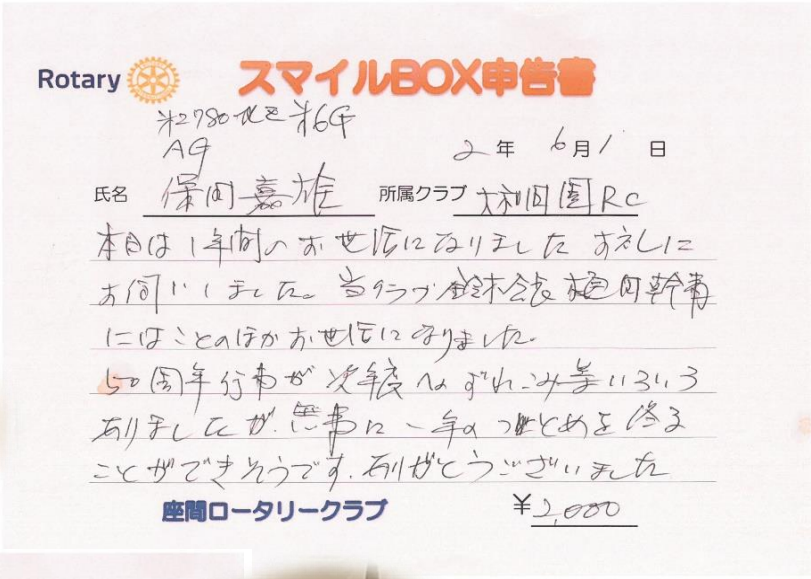 Rotary スマイルBOX申告書
第2780地区 第6G
AG
2年 6月1日
氏名 保田嘉雄 所属クラブ 大和田園RC
本日は1年間のお世話になりました お礼に
お伺いしました。当クラブ鈴木会長 植田幹事
にはことのほかお世話になりました。
50周年行事が次年度へずれこみ等いろいろ
ありましたが、無事に一年のつとめを終る
ことができそうです。ありがとうございました
座間ロータリークラブ ¥2,000